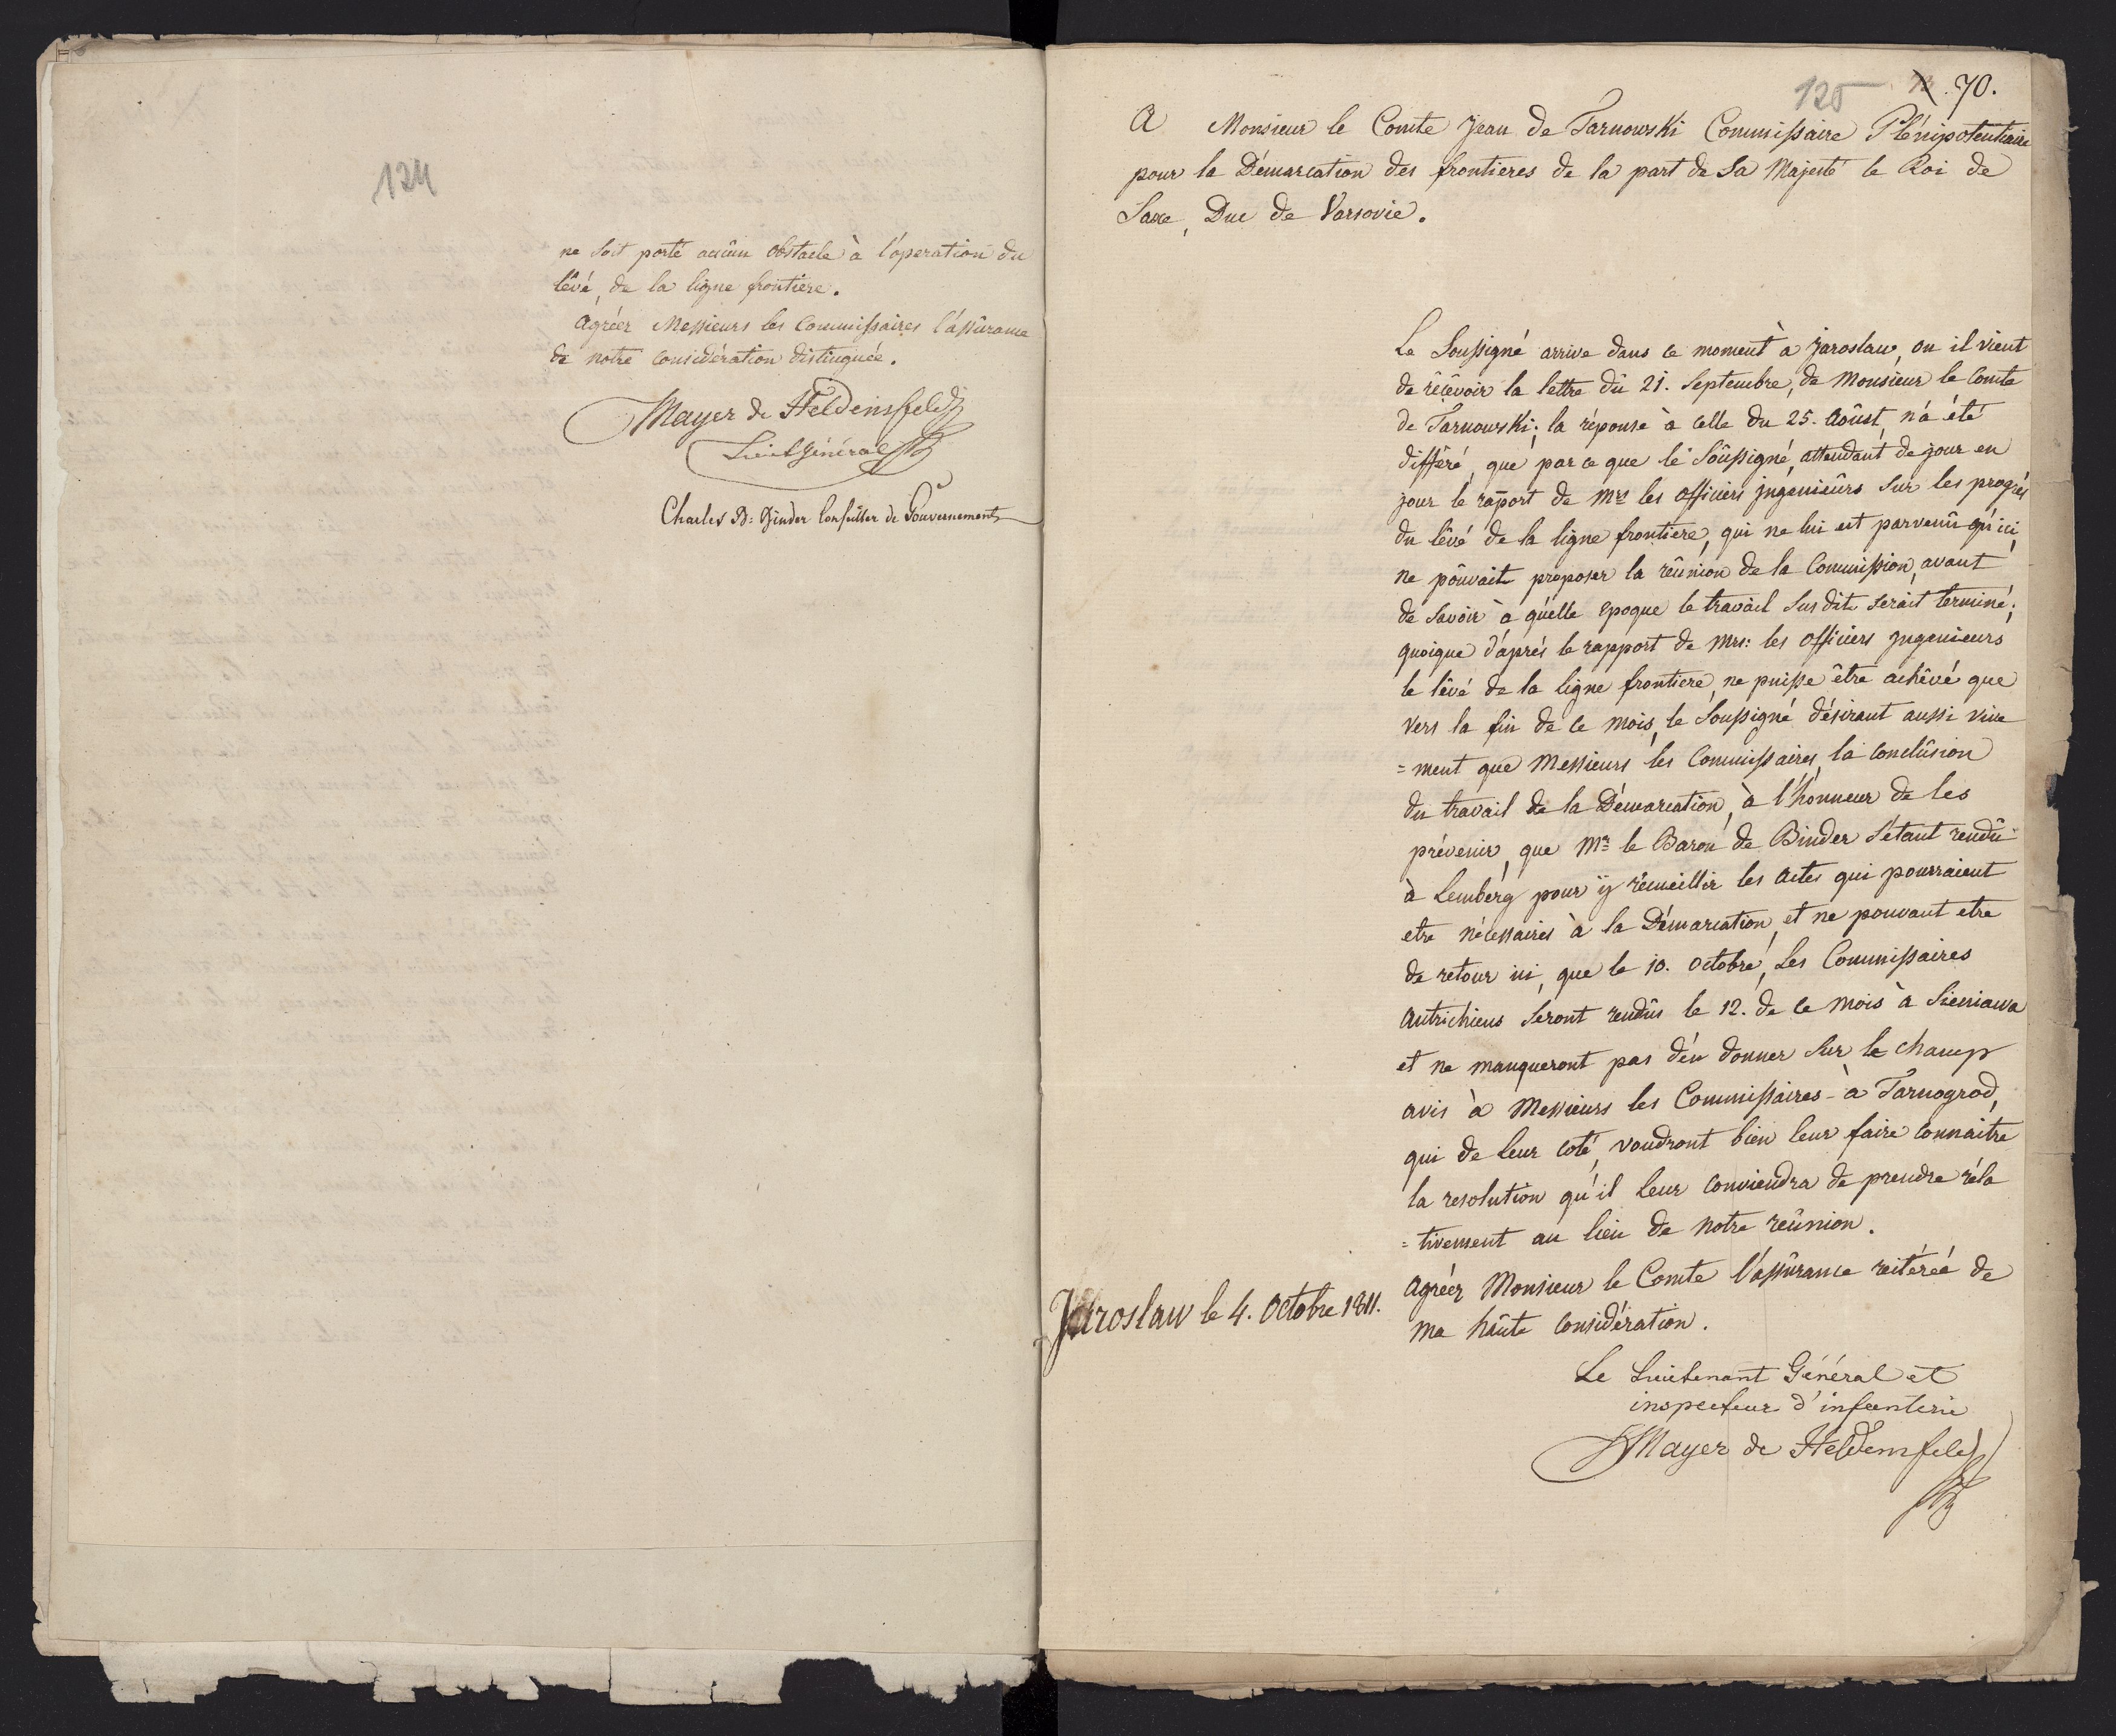 124
ne soit porté aucûn obstacle à l'óperation du
lêvé, de la ligne frontiere.
Agréez Messieurs les Commissaires l'assûrance
de notre considération distinguée.
Mayer de Heldensfeld
Lieut Général
Charles B: Binder Conseiller de Gouvernement
125 70.
A Monsieur le Comte Jean de Tarnowski Commissaire Plénipotentiaire
pour la Démarcation des frontieres de la part de Sa Majesté le Roi de
Saxe, Duc de Varsovie.
Le Soussigné arrive dans ce moment à Jaroslaw, ou il vient
de récevoir la lettre dû 21. Septembre, de Monsieur le Comte
de Tarnowski; la réponse à celle du 25. Aôust, n'a été
différé, que parce que le Soûssigné, attendant de jour en
jour le raport de Mrs les officiers jngenieûrs sur les progrés
du lêvé de la ligne frontiere, qui ne lui est parvenû qu'ici,
ne pôuvait proposer la réûnion de la Commission, avant
de savoir à quelle epoque le travail sus dit serait terminé;
quoique d'aprés le rapport de Mrs: les officiers jngenieurs
le lêvé de la ligne frontiere, ne puisse être achêvé que
vers la fin de ce mois, le Soussigné désirant aussi vive
=ment que Messieurs les Commissaires, la conclûsion
du travail de la Démarcation, à l'honneur de les
prévenir, que Mr le Baron de Binder s'étant rendû
à Lemberg pour ÿ recueillir les actes qui pourraient
etre nécessaires à la Démarcation, et ne pouvant etre
de retour ici, que le 10. Octobre, Les Commissaires
Autrichiens seront rendûs le 12. de ce mois à Sieniawa
et ne manqueront pas d'en donner sur le champ
avis à Messieurs les Commissaires à Tarnogrod,
qui de leur coté, voudront bien leur faire connaitre
la resolution qu'il leur conviendra de prendre réla
=tivement au lieu de notre réûnion.
Agréez Monsieur le Comte l'assûrance reitérée de
ma hâute considération.
Jaroslaw le 4. Octobre 1811.
Le Lieutenant Général et
inspecteur d'infanterie
Mayer de Heldensfeld